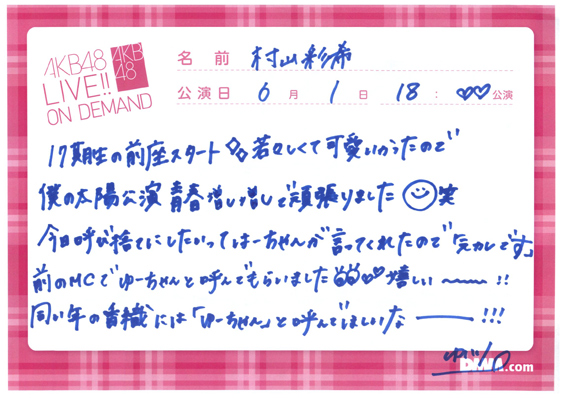 AKB48
LIVE!!
ON DEMAND
AKB
48
名前 村山彩希
公演日 6月1日 18:♡♡公演
17期生の前座スタート◇◇若々しくて可愛いかったので
僕の太陽公演 青春増し増しで頑張りました☺笑
今日呼び捨てにしたいってはーちゃんが言ってくれたので「元カレです」
前のMCでゆーちゃんと呼んでもらいました♡嬉しい〜〜!!
同い年の香織には「ゆーちゃん」と呼んでほしいなー!!!
.com